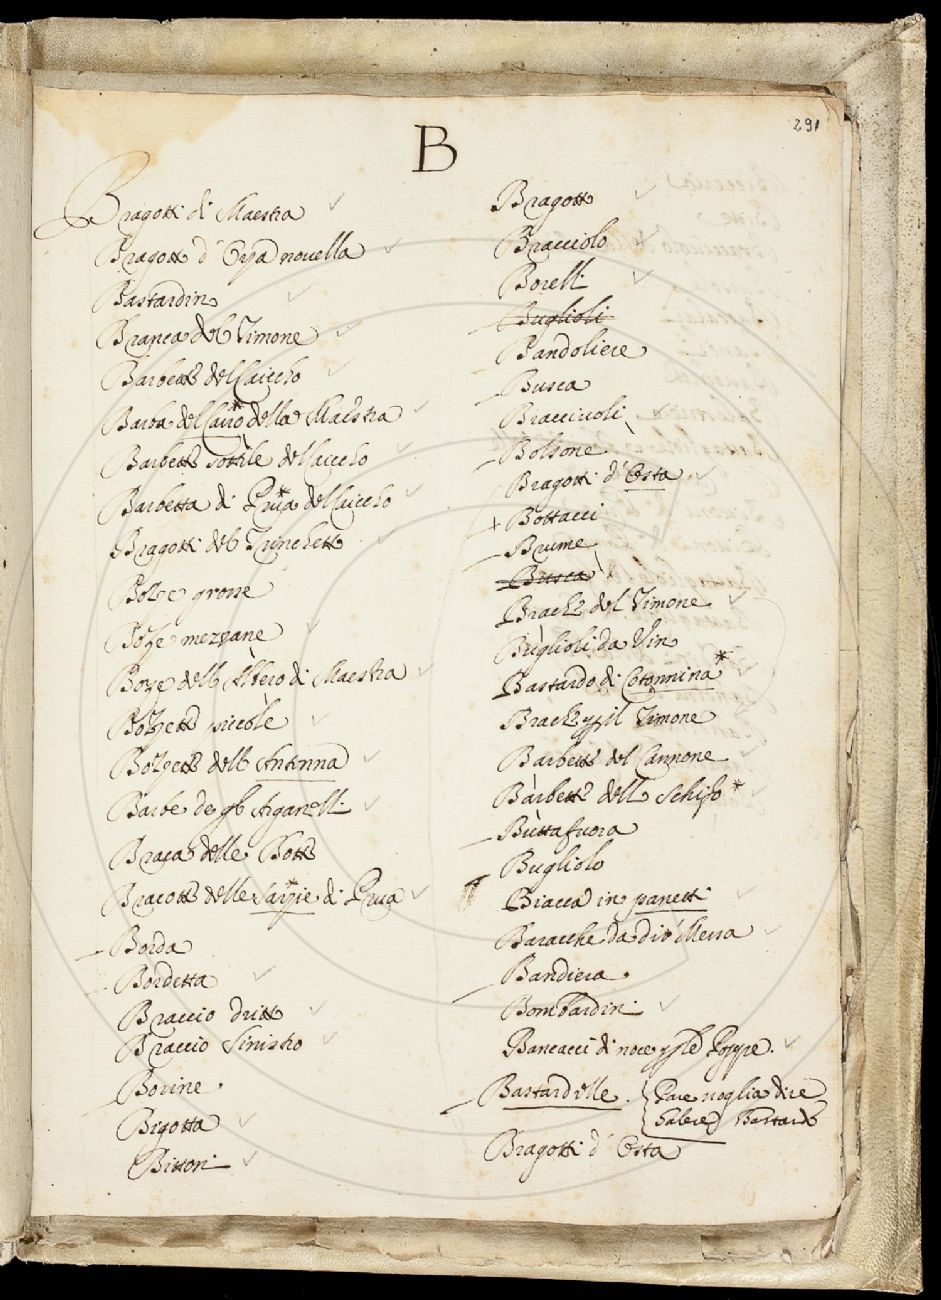 291
B
Bragotti di Maestra
Bragotto d' Orza novella
Bastardin
Branca del Timone
Barbetta del Caiccho
Barba del Cavo* della Maestra
Barbetta sottile del Caiccho
Barbetta di Prua del Caiccho
Bragotti del Trinchetto
Boze grosse
Boze mezzane
Boze dell Albero di Maestra
Bozzetto picole
Bozzetti dell Antenna
Barbe de gli Arganelli
Braca delle Botte
Bracotto delle Sarzie di Prua
Borda
Bordetta
Braccio dritto
Braccio Sinistro
Bovine
Bigotta
Bittoni
Bragotto
Bracciolo
Borelli
Buglioli
Bandoliere
Busca
Bracciuoli
Bolsone
Bragotti d' Osta
+ Bottacci
Brume
Busca
Brache del Timone
Buglioli da Vin
Bastardo di Cotonnina*
Brache p il Timone
Barbette del Cannone
Barbetta dell Schifo*
Buttafuora
Bugliolo
Biacca in panetti
Baracche da dir Messa
Bandiera
Bombardini
Bancacci di noce p le Poppe.
Bastardelle. { Pare voglia dire
Salere Bastardo
Bragotti d' Osta